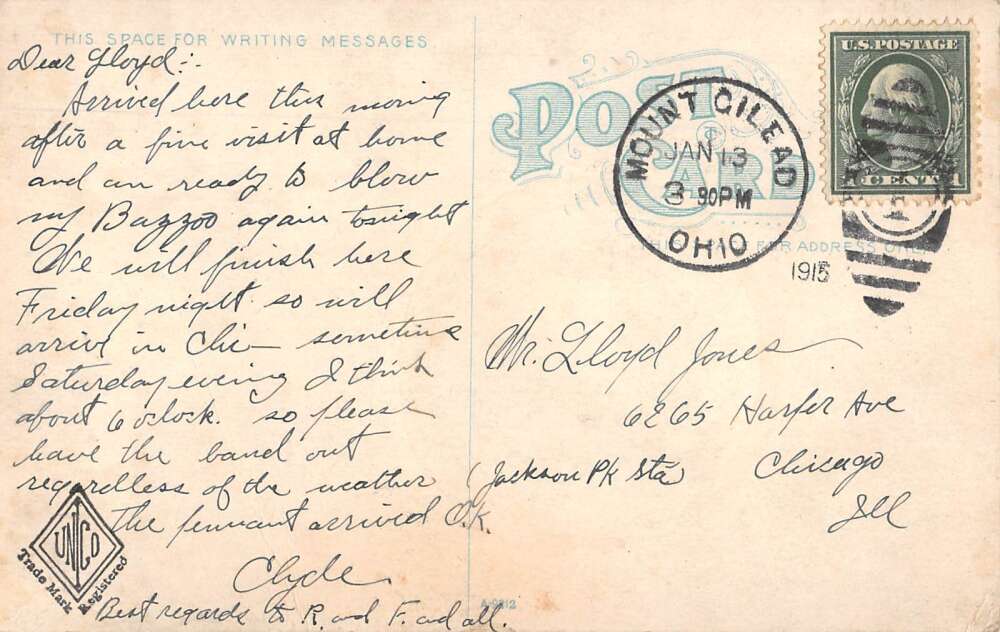 THIS SPACE FOR WRITING MESSAGES
Dear Lloyd:-
Arrived here this moring
after a fine visit at home
and am ready to blow
my Bazzoo again tonight
We will finish here
Friday night so will
arrive in Chi- sometime
Saturday evening I think
about 6 oclock. so please
have the band out
regardless of the weather
The pennant arrived O.K.
Clyde
Best regards to R. and F. and all.
UNCO
Trade Mark Registered
POST CARD
THIS SPACE FOR ADDRESS ONLY
U.S. POSTAGE
1 CENT 1
MOUNT GILEAD
JAN 13
3 30PM
OHIO
1915
Mr. Lloyd Jones
6265 Harper Ave
(Jackson Pk Sta) Chicago
Ill